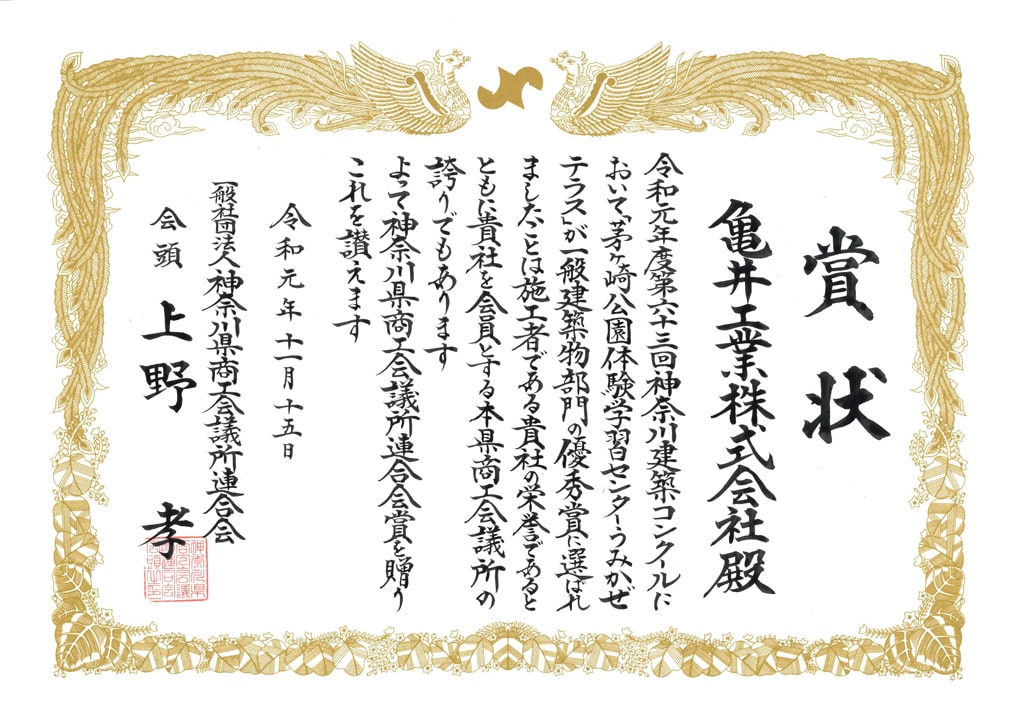 賞状
亀井工業株式会社殿
令和元年度第六十三回神奈川建築コンクールに
おいて「茅ヶ崎公園体験学習センターうみかぜ
テラス」が一般建築物部門の優秀賞に選ばれ
ましたことは施工者である貴社の栄誉であると
ともに貴社を会員とする本県商工会議所の
誇りでもあります
よって神奈川県商工会議所連合会賞を贈り
これを讃えます
令和元年十一月十五日
一般社団法人神奈川県商工会議所連合会
会頭 上野 孝